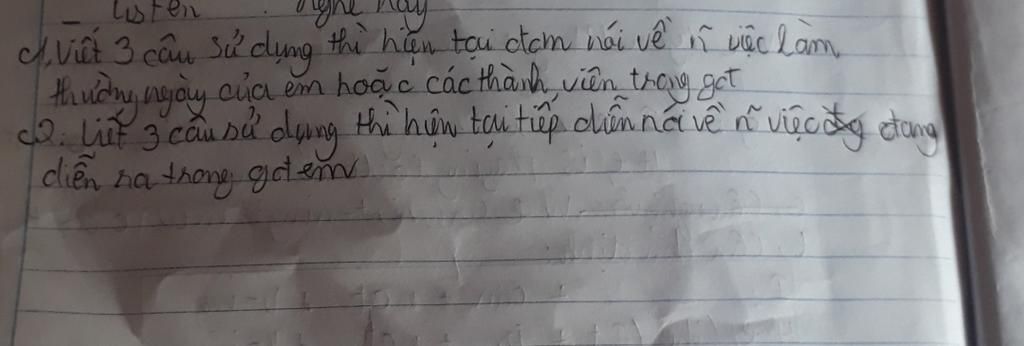 _ Listen : Nghe này
c1. Viết 3 câu sử dụng thì hiện tại đơn nói về n~ việc làm
thường ngày của em hoặc các thành viên trong gđ
c2. Viết 3 câu sử dụng thì hiện tại tiếp diễn nói về n~ việc đang
diễn ra trong gđ em